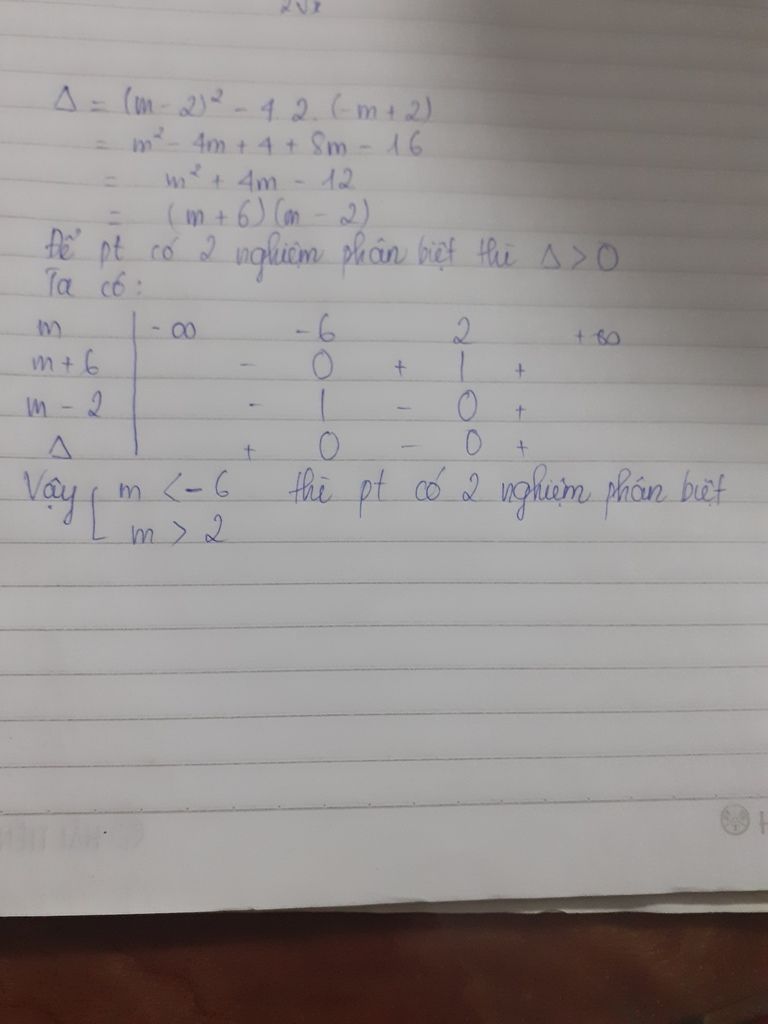 2√x
Δ = (m - 2)² - 4 2. (-m + 2)
= m² - 4m + 4 + 8m - 16
= m² + 4m - 12
= (m + 6)(m - 2)
Để pt có 2 nghiệm phân biệt thì Δ > 0
Ta có:
m | -∞ -6 2 +∞
m + 6 | - 0 + | +
m - 2 | - | - 0 +
Δ | + 0 - 0 +
Vậy [ m < -6 thì pt có 2 nghiệm phân biệt
m > 2